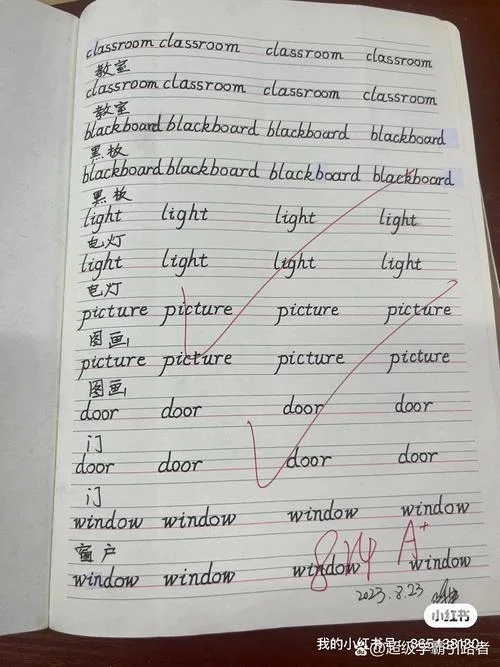 classroom classroom classroom classroom
教室
classroom classroom classroom classroom
教室
blackboard blackboard blackboard blackboard
黑板
blackboard blackboard blackboard blackboard
黑板
light light light light
电灯
light light light light
电灯
picture picture picture picture
图画
picture picture picture picture
图画
door door door door
门
door door door door
门
window window window window
窗户
window window window window
A+
2023.8.23
小红书
我的小红书号:
@超级学霸引路者